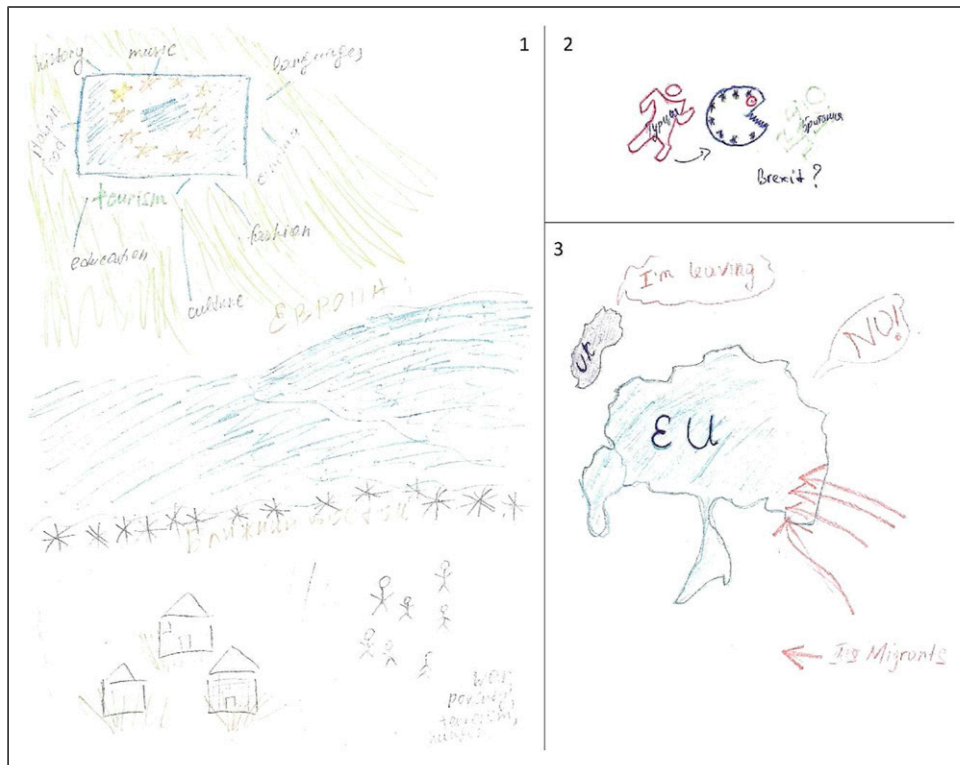 1
history
music
languages
tourism
education
fashion
culture
ЕВРОПА
Ближний Восток
war,
poverty,
terrorism,
2
Турция
Британия
Brexit?
3
I'm leaving
UK
NO!
EU
Migrants